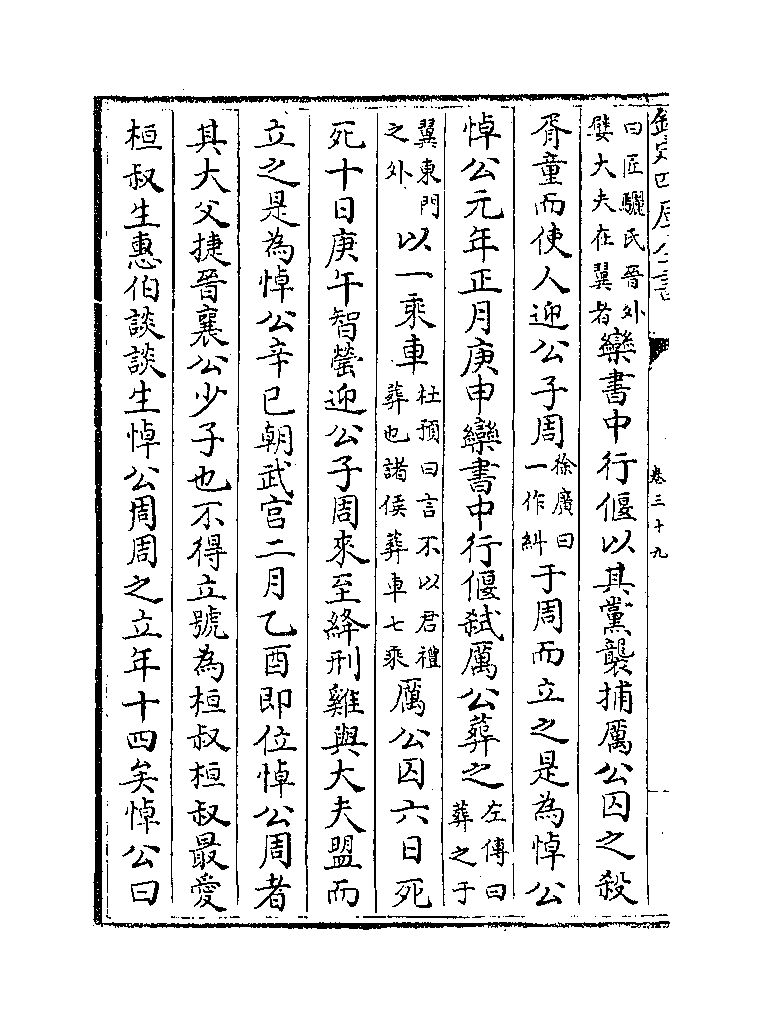 欽定四庫全書
卷三十九
曰匠驪氏晉外
嬖大夫在翼者
欒書中行偃以其黨襲捕厲公囚之殺
胥童而使人迎公子周
徐廣曰
一作糾
于周而立之是為悼公
悼公元年正月庚申欒書中行偃弑厲公葬之
左傳曰
葬之于
翼東門
之外
以一乘車
杜預曰言不以君禮
葬也諸侯葬車七乘
厲公囚六日死
死十日庚午智罃迎公子周來至絳刑雞與大夫盟而
立之是為悼公辛巳朝武宮二月乙酉即位悼公周者
其大父捷晉襄公少子也不得立號為桓叔桓叔最愛
桓叔生惠伯談談生悼公周周之立年十四矣悼公曰